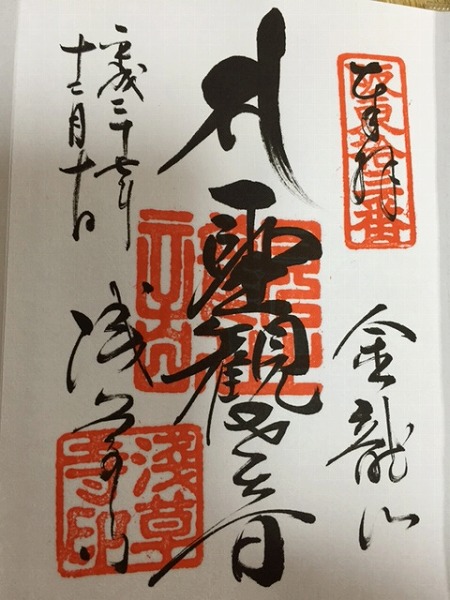 奉拝
坂東拾三番
金龍山
聖観世音
平成二十七年
十二月十日
浅草寺
浅草寺印